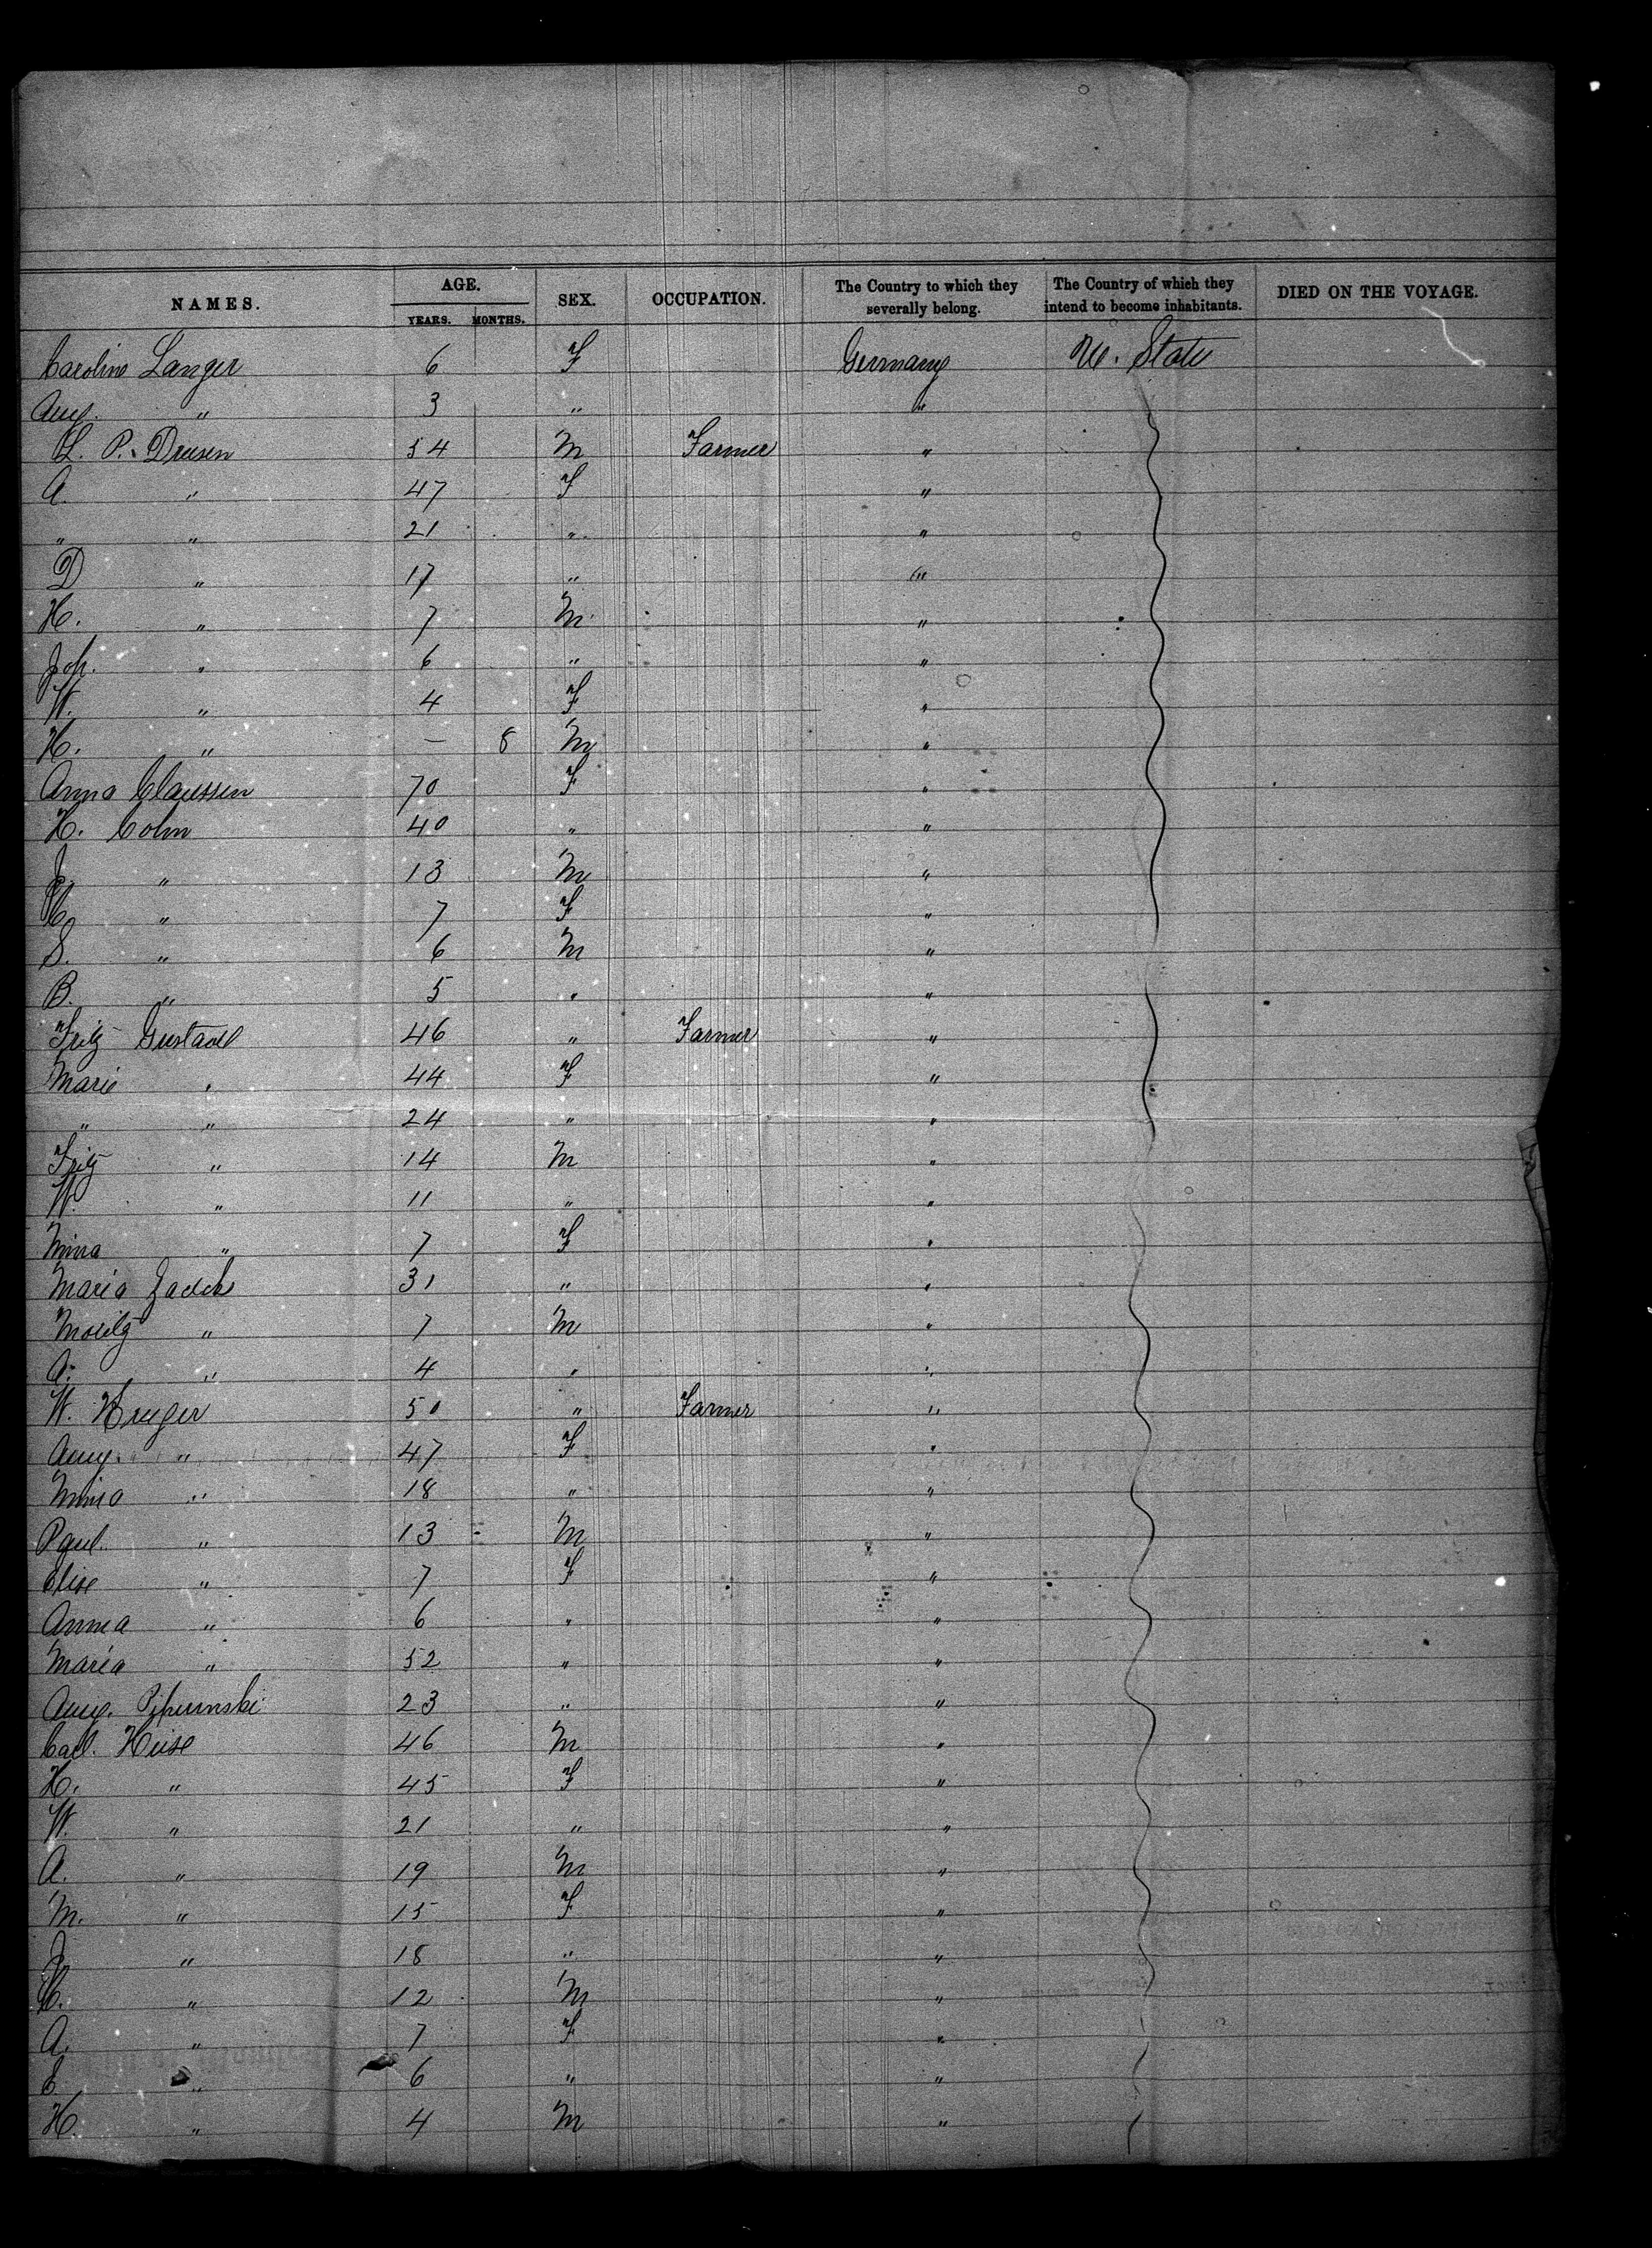 NAMES. AGE. YEARS. MONTHS. SEX. OCCUPATION. The Country to which they severally belong. The Country of which they intend to become inhabitants. DIED ON THE VOYAGE.
Caroline Langer 6 F Germany U. State
Aug. " 3 " "
L. P. Driesen 54 M Farmer "
A. " 47 F "
" " 21 " "
D " 17 " "
H. " 7 M "
Joh. " 6 " "
W. " 4 F "
H. " — 8 M "
Anna Claussen 70 F "
H. Cohn 40 " "
J. " 13 M "
C. " 7 F "
S. " 6 M "
B. " 5 " "
Fritz Gustadl 46 " Farmer "
Marie " 44 F "
" " 24 " "
Fritz " 14 M "
W. " 11 " "
Mina " 7 F "
Maria Zadek 31 " "
Moritz " 7 M "
A. " 4 " "
W. Kruger 50 " Farmer "
Aug. " 47 F "
Mina " 18 " "
Paul. " 13 M "
Elise " 7 F "
Anna " 6 " "
Maria " 52 " "
Aug. 23 " "
Carl. Heise 46 M "
H. " 45 F "
W. " 21 " "
A. " 19 M "
M. " 15 F "
J. " 18 " "
C. " 12 M "
A. " 7 F "
E. " 6 " "
H. " 4 M "